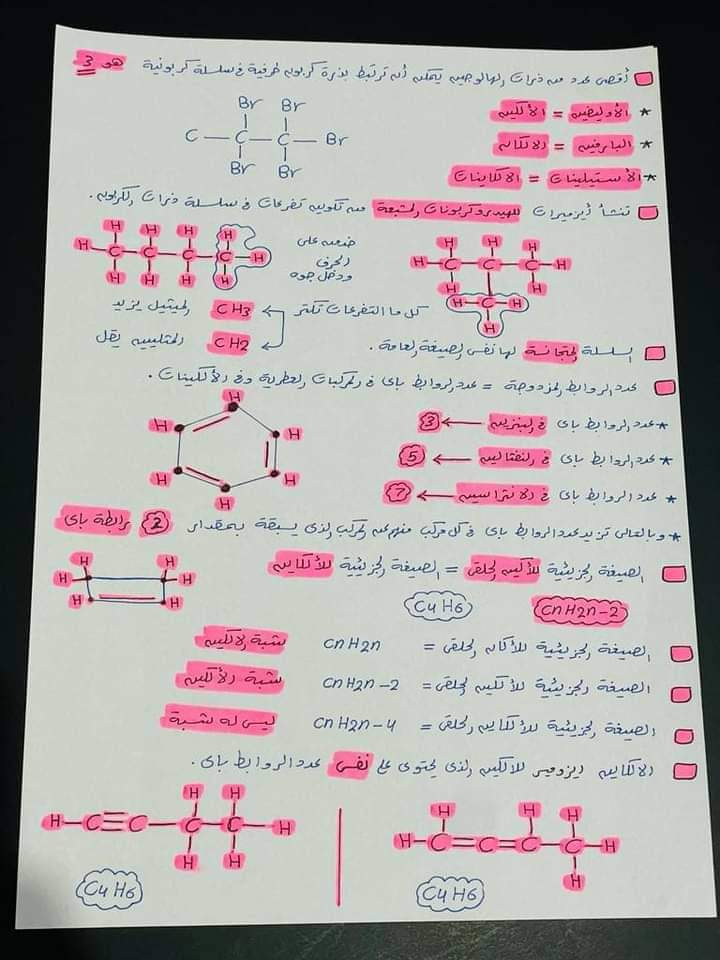 أقصى عدد من ذرات الهالوجين يمكن أن ترتبط بذرة كربون طرفية فى سلسلة كربونية هو 3
* الأوليفين = الألكين
* البارفين = الالكان
* الأستيلينات = الالكاينات
Br Br
C — C — C — Br
Br Br
تنشأ أيزميرات للهيدروكربونات المشبعة من تكوين تفرعات فى سلسلة ذرات الكربون.
H H H H
H C C C C H
H H H H
على
الحرف
ودخل جوه
H H H
H C C C H
H H
H C H
H
كل ما التفرعات تكتر
CH3 الميثيل يزيد
CH2 المثيلين يقل
السلسلة المتجانسة لها نفس الصيغة العامة.
عدد الروابط المزدوجة = عدد الروابط باى فى المركبات العطرية وفى الألكينات.
* عدد الروابط باى فى البنزين ← 3
* عدد الروابط باى فى النفثالين ← 5
* عدد الروابط باى فى الانثراسين ← 7
H
H H
H H
H
* وبالتالى تزيد عدد الروابط باى فى كل مركب منهم عن المركب الذى يسبقة بمقدار 2 رابطة باى
الصيغة الجزيئية للألكين الحلقى = الصيغة الجزيئية للألكاين
CnH2n-2 C4H6
H H
H H
H H
الصيغة الجزيئية للألكان الحلقى = CnH2n شبة الالكين
الصيغة الجزيئية للألكين الحلقى = CnH2n-2 شبة الألكين
الصيغة الجزيئية للألكاين الحلقى = CnH2n-4 ليس له شبة
الالكاين ايزومير للالكين الذى يحتوى على نفس عدد الروابط باى.
H H
H—C≡C—C—C—H
H H
C4H6
H H H
H—C=C=C—C—H
H
C4H6